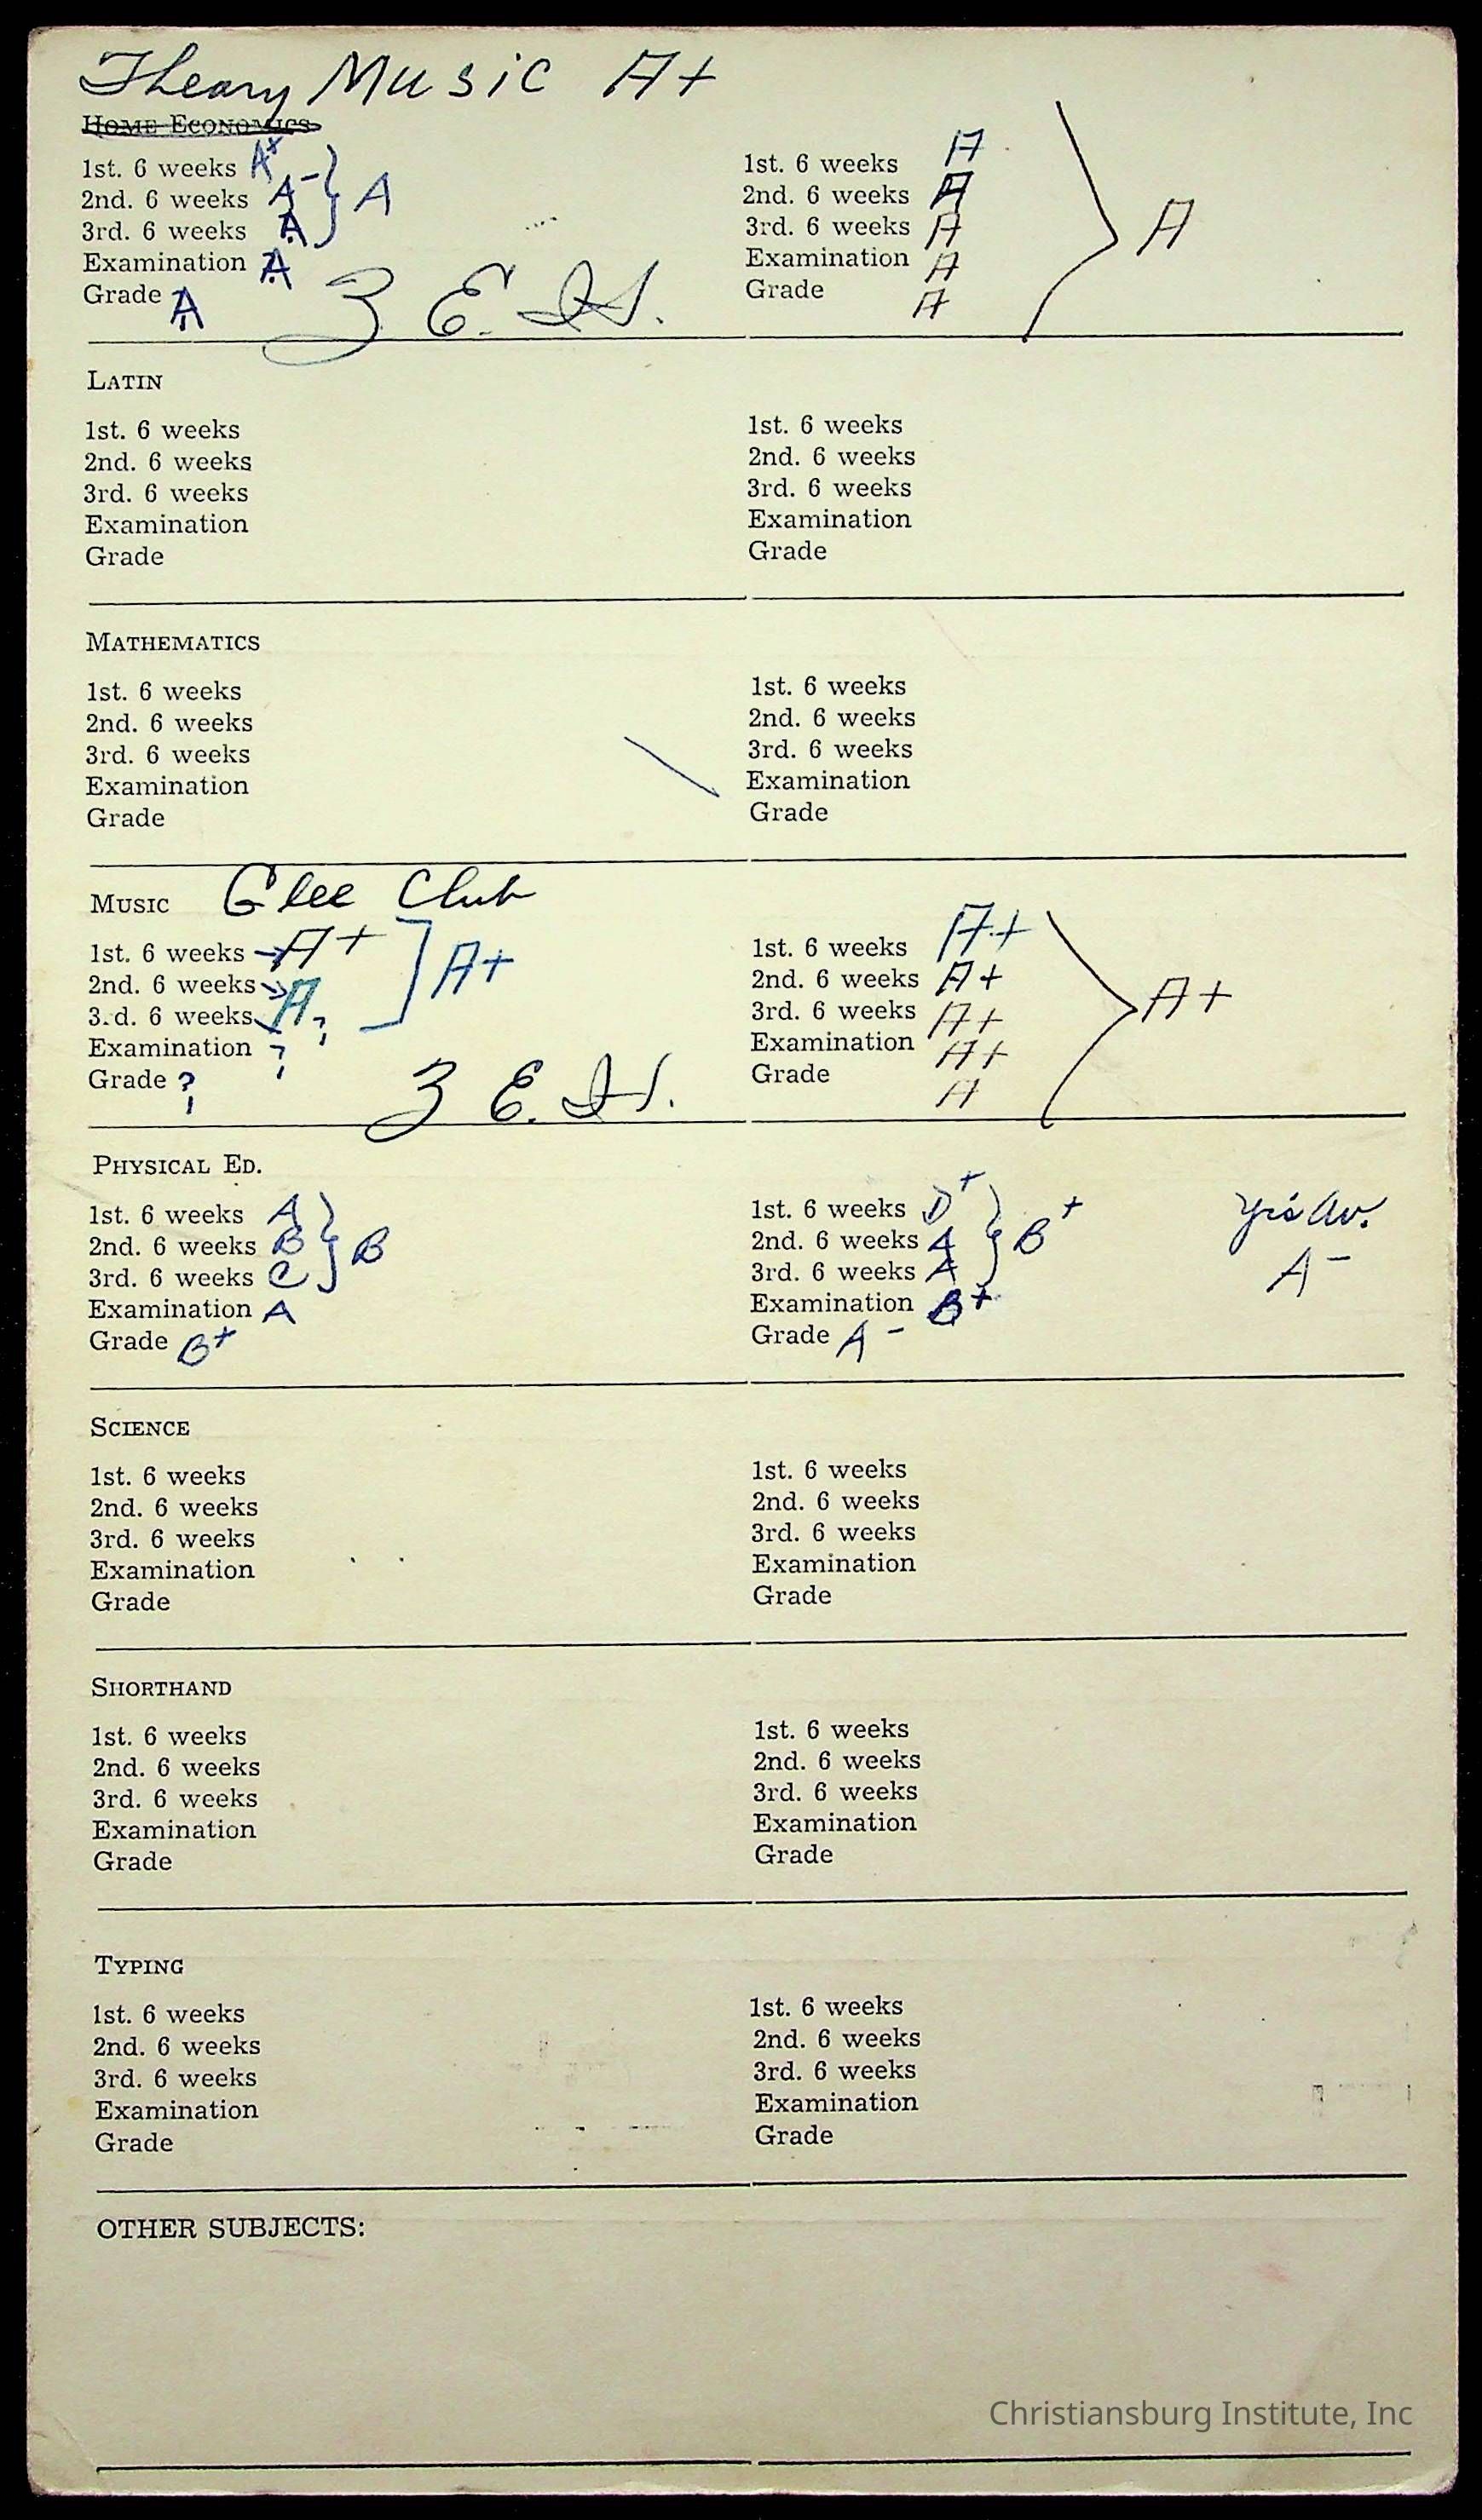 Theory Music A+
HOME ECONOMICS
1st. 6 weeks A+
2nd. 6 weeks A- } A
3rd. 6 weeks A
Examination A
Grade A
3 E. H.
1st. 6 weeks A
2nd. 6 weeks A
3rd. 6 weeks A } A
Examination A
Grade A
LATIN
1st. 6 weeks
2nd. 6 weeks
3rd. 6 weeks
Examination
Grade
1st. 6 weeks
2nd. 6 weeks
3rd. 6 weeks
Examination
Grade
MATHEMATICS
1st. 6 weeks
2nd. 6 weeks
3rd. 6 weeks
Examination
Grade
1st. 6 weeks
2nd. 6 weeks
3rd. 6 weeks
Examination
Grade
MUSIC Glee Club
1st. 6 weeks A+
2nd. 6 weeks A ] A+
3.d. 6 weeks ?
Examination ?
Grade ?
3 E. H.
1st. 6 weeks A+
2nd. 6 weeks A+
3rd. 6 weeks A+ } A+
Examination A+
Grade A
PHYSICAL ED.
1st. 6 weeks A
2nd. 6 weeks B } B
3rd. 6 weeks C
Examination A
Grade B+
1st. 6 weeks D+
2nd. 6 weeks A } B+
3rd. 6 weeks A
Examination B+
Grade A-
Yr's Av.
A-
SCIENCE
1st. 6 weeks
2nd. 6 weeks
3rd. 6 weeks
Examination
Grade
1st. 6 weeks
2nd. 6 weeks
3rd. 6 weeks
Examination
Grade
SHORTHAND
1st. 6 weeks
2nd. 6 weeks
3rd. 6 weeks
Examination
Grade
1st. 6 weeks
2nd. 6 weeks
3rd. 6 weeks
Examination
Grade
TYPING
1st. 6 weeks
2nd. 6 weeks
3rd. 6 weeks
Examination
Grade
1st. 6 weeks
2nd. 6 weeks
3rd. 6 weeks
Examination
Grade
OTHER SUBJECTS:
Christiansburg Institute, Inc